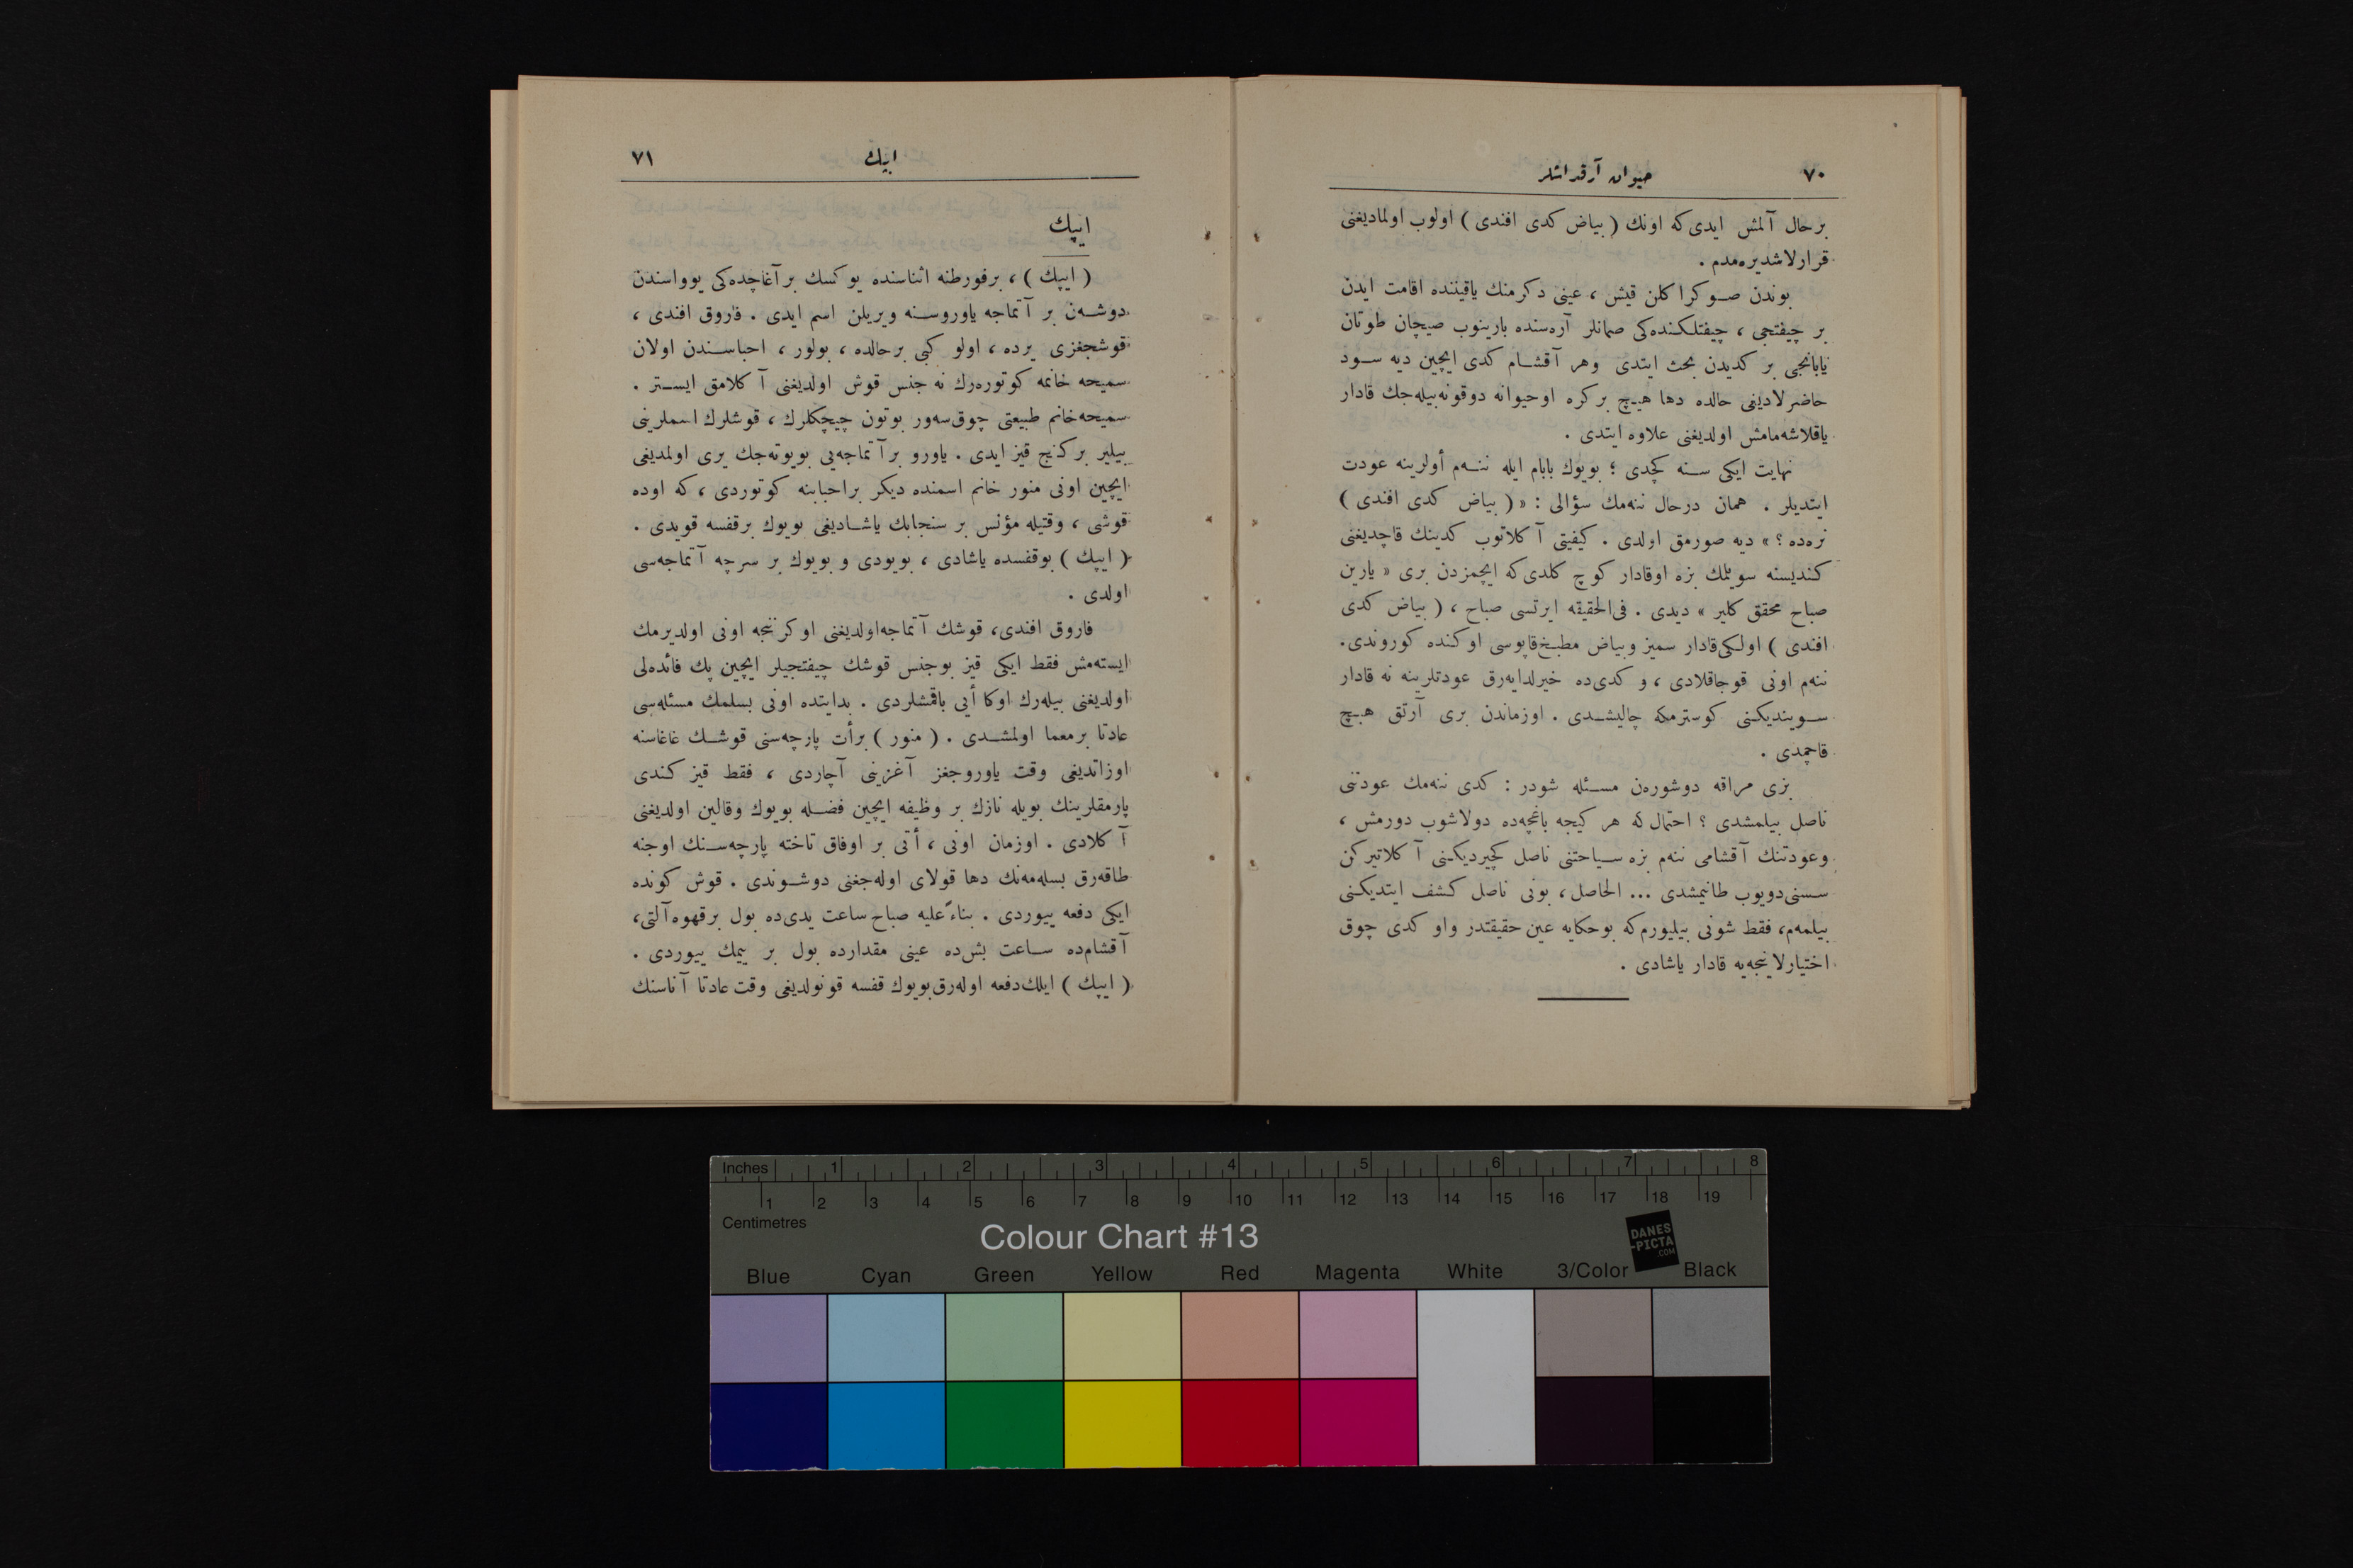 ٧٠
حيوان آرقداشلر
برحال آلمش ايدى كه اونك ( بياض كدى افندى ) اولوب اولماديغنى
قرارلاشديره‌مدم .
بوندن صوكرا كلن قيش ، عينى دكرمنك ياقيننده اقامت ايدن
بر چيفتجى ، چيفتلكنده‌كى صمانلر آره‌سنده بارينوب صيچان طوتان
يابانجى بر كديدن بحث ايتدى وهر آقشام كدى ايچين ديه سود
حاضرلاديغى حالده دها هيچ بركره اوحيوانه دوقونه‌بيله‌جك قادار
ياقلاشه‌مامش اولديغنى علاوه ايتدى .
نهايت ايكى سنه كچدى ؛ بويوك بابام ايله ننه‌م أولرينه عودت
ايتديلر . همان درحال ننه‌مك سؤالى : « ( بياض كدى افندى )
نره‌ده ؟ » ديه صورمق اولدى . كيفيتى آكلاتوب كدينك قاچديغنى
كنديسنه سويلمك بزه اوقادار كوچ كلدى كه ايچمزدن برى « يارين
صباح محقق كلير » ديدى . فى‌الحقيقه ايرتسى صباح ، ( بياض كدى
افندى ) اولكى قادار سميز وبياض مطبخ قاپوسى اوكنده كوروندى .
ننه‌م اونى قوجاقلادى ، و كدى ده خيرلدايه‌رق عودتلرينه نه قادار
سوينديكنى كوسترمكه چاليشدى . اوزماندن برى آرتق هيچ
قاچمدى .
بزى مراقه دوشوره‌ن مسئله شودر : كدى ننه‌مك عودتنى
ناصل بيلمشدى ؟ احتمال كه هر كيجه باغچه‌ده دولاشوب دورمش ،
وعودتنك آقشامى ننه‌م بزه سياحتنى ناصل كچيرديكنى آكلاتيركن
سسنى دويوب طانيمشدى ... الحاصل ، بونى ناصل كشف ايتديكنى
بيلمه‌م، فقط شونى بيليورم كه بوحكايه عين حقيقتدر واو كدى چوق
اختيارلاينجه‌يه قادار ياشادى .
ايپك
٧١
ايپك
( ايپك ) ، برفورطنه اثناسنده يوكسك برآغاچده‌كى يوواسندن
دوشه‌ن بر آتماجه ياوروسنه ويريلن اسم ايدى . فاروق افندى ،
قوشجغزى يرده ، اولو كبى برحالده ، بولور ، احباسندن اولان
سميحه خانمه كوتوره‌رك نه جنس قوش اولديغنى آكلامق ايستر .
سميحه خانم طبيعتى چوق سه‌ور بوتون چيچكلرك ، قوشلرك اسملرينى
بيلير بر كنج قيز ايدى . ياورو بر آتماجه‌يى بويوته‌جك يرى اولمديغى
ايچين اونى منور خانم اسمنده ديكر براحبابنه كوتوردى ، كه اوده
قوشى ، وقتيله مؤنس بر سنجابك ياشاديغى بويوك برقفسه قويدى .
( ايپك ) بوقفسده ياشادى ، بويودى و بويوك بر سرچه آتماجه‌سى
اولدى .
فاروق افندى، قوشك آتماجه اولديغنى اوكرننجه اونى اولديرمك
ايسته‌مش فقط ايكى قيز بوجنس قوشك چيفتجيلر ايچين پك فائده‌لى
اولديغنى بيله‌رك اوكا أيى باقمشلردى . بدايتده اونى بسلمك مسئله‌سى
عادتا برمعما اولمشدى . ( منور ) برأت پارچه‌سنى قوشك غاغاسنه
اوزاتديغى وقت ياوروجغز آغزينى آچاردى ، فقط قيز كندى
پارمقلرينك بويله نازك بر وظيفه ايچين فضله بويوك وقالين اولديغنى
آكلادى . اوزمان اونى ، أتى بر اوفاق تاخته پارچه‌سنك اوجنه
طاقه‌رق بسله‌مه‌نك دها قولاى اوله‌جغنى دوشوندى . قوش كونده
ايكى دفعه ييوردى . بناءً عليه صباح ساعت يدى ده بول برقهوه آلتى،
آقشام‌ده ساعت بش ده عينى مقدارده بول بر ييمك ييوردى .
( ايپك ) ايلك دفعه اوله‌رق بويوك قفسه قونولديغى وقت عادتا آناسنك
Inches 1 2 3 4 5 6 7 8
1 2 3 4 5 6 7 8 9 10 11 12 13 14 15 16 17 18 19
Centimetres
Colour Chart #13
DANES
-PICTA
.COM
Blue Cyan Green Yellow Red Magenta White 3/Color Black